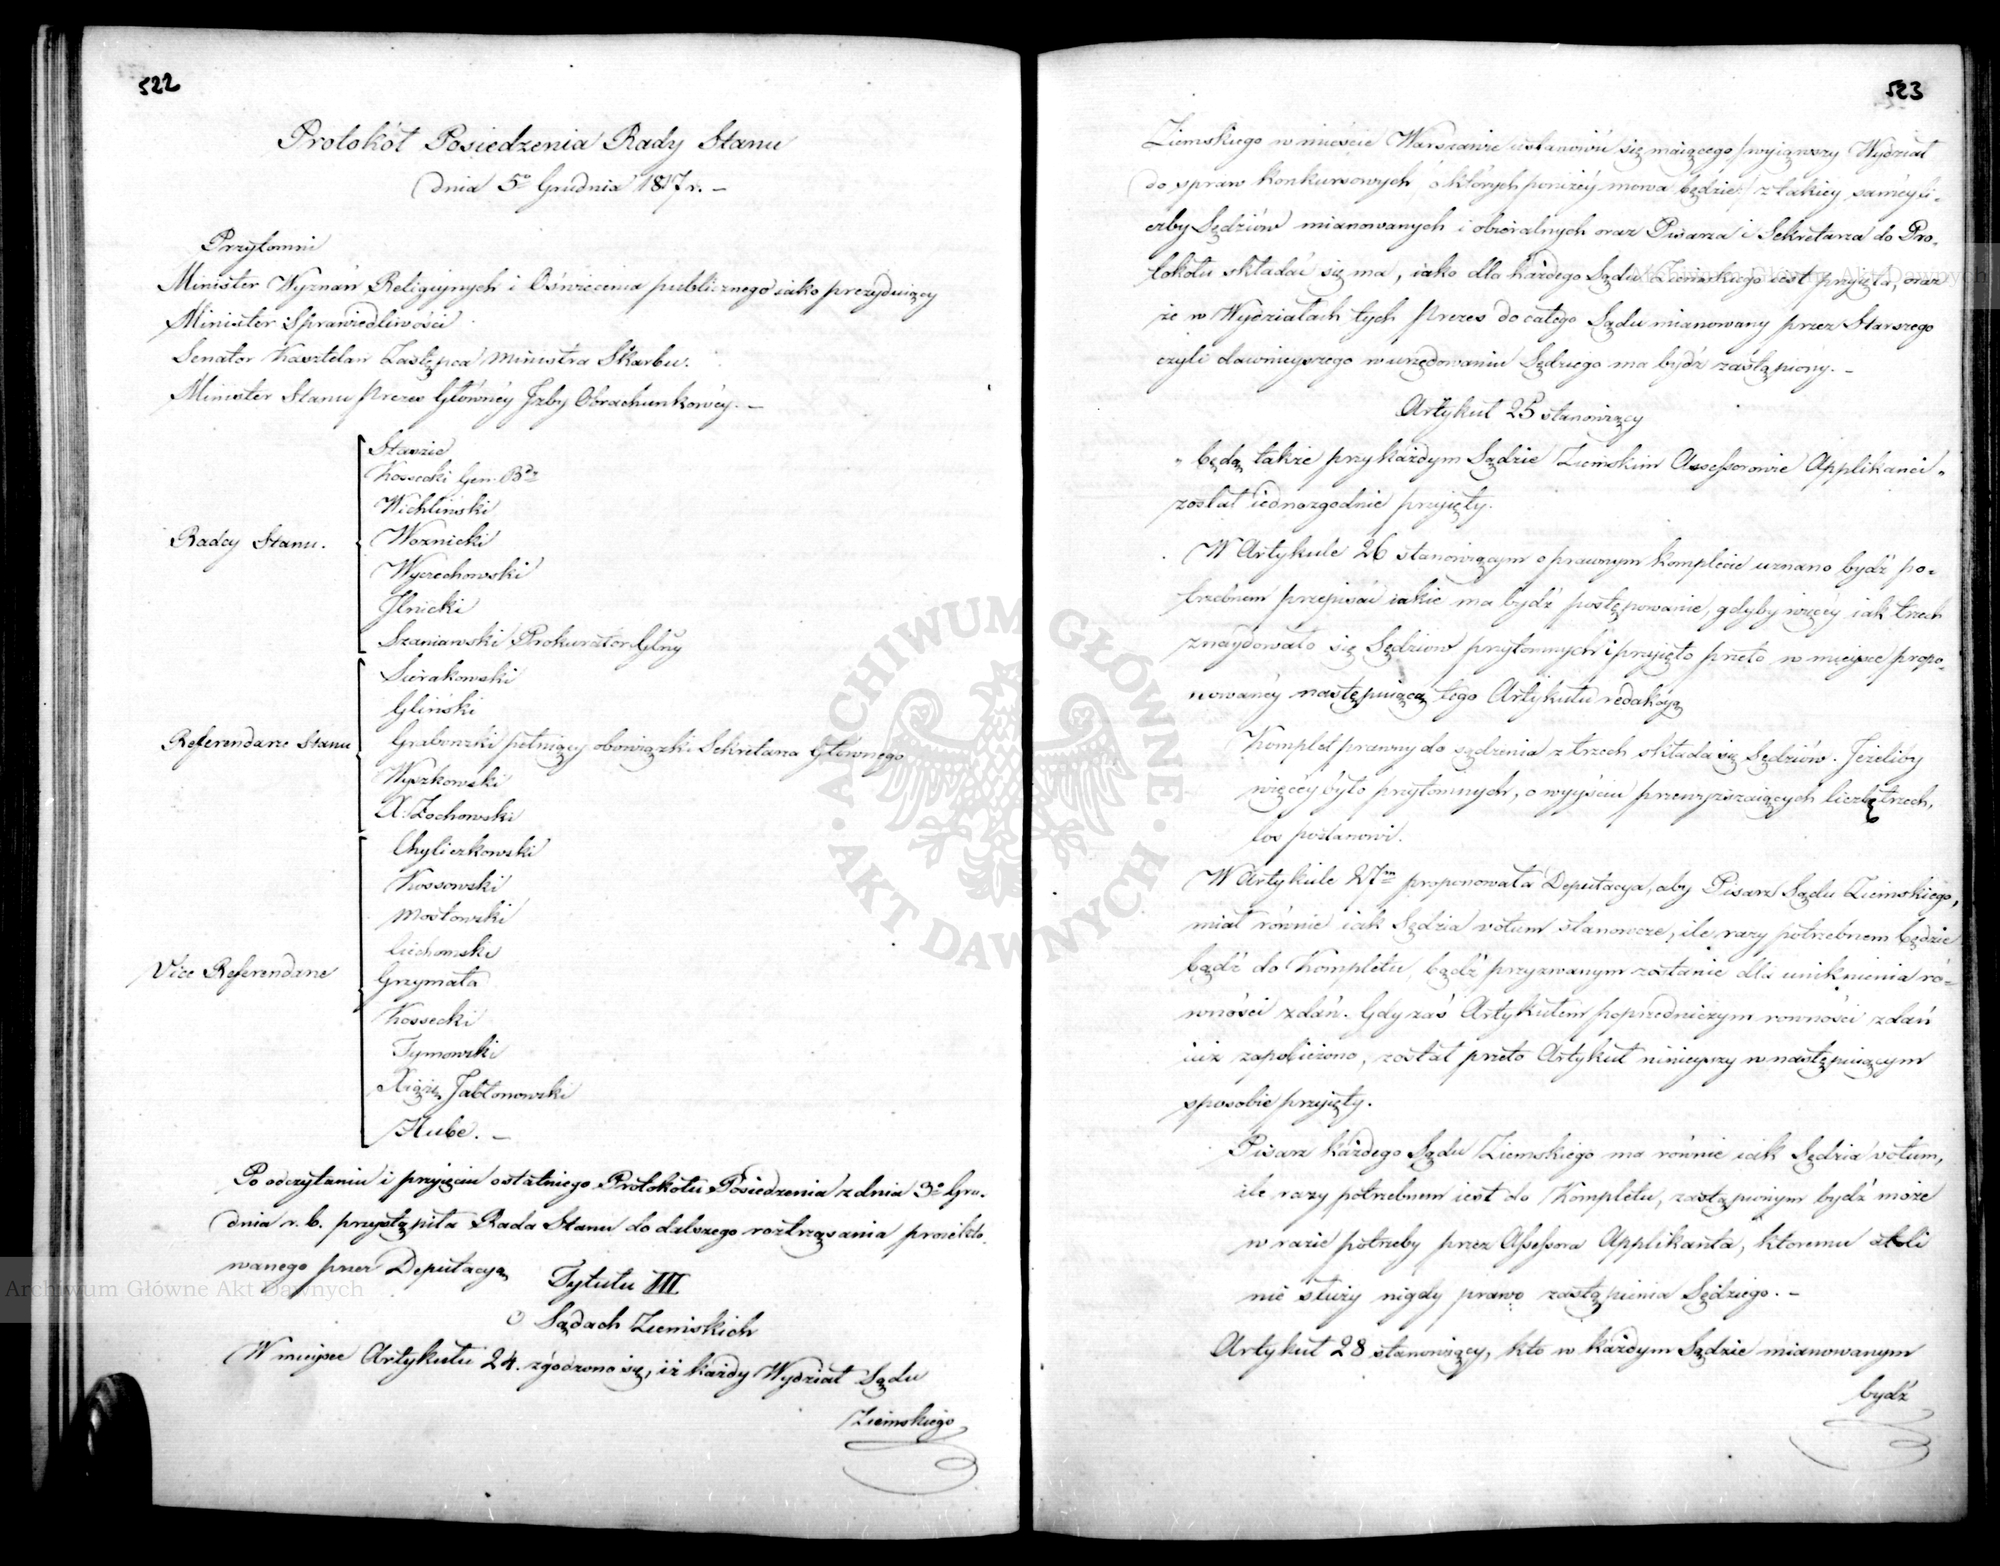 522
Protokół Posiedzenia Rady Stanu
dnia 5º Grudnia 1817 r. –
Przytomni
Minister Wyznań Religijnych i Oświecenia publicznego iako prezyduiący
Minister Sprawiedliwości
Senator Kasztelan Zastępca Ministra Skarbu.
Minister Stanu Prezes Głównéy Izby Obrachunkowéy. –
Radcy Stanu.
Staszic
Kossecki Gen. Bdy
Wichliński
Woznicki
Wyczechowski
Ilnicki
Szaniawski Prokurator Glny
Referendarze Stanu
Sierakowski
Gliński
Grabowski pełniący obowiązki Sekretarza Głównego
Wyszkowski
X. Zochowski
Vice Referendarze
Chyliczkowski
Kossowski
Mostowski
Ciechomski
Grzymała
Kossecki
Tymowski
Xiążę Jabłonowski
Hube. –
Po odczytaniu i przyięciu ostatniego Protokołu Posiedzenia z dnia 3º Gru-
dnia r. b. przystąpiła Rada Stanu do dalszego roztrząsania proiekto-
wanego przez Deputacyą
Tytułu III
O Sądach Ziemskich
W mieysce Artykułu 24. zgodzono się, iż każdy Wydział Sądu
Ziemskiego
523
Ziemskiego w mieście Warszawie ustanowić się maiącego /wyiąwszy Wydział
do spraw konkursowych o których poniżéy mowa będzie/ z takiey saméy li-
czby Sędziów mianowanych i obieralnych oraz Pisarza i Sekretarza do Pro-
tokołu składać się ma, iako dla każdego Sądu Ziemskiego iest przyięta, oraz
że w Wydziałach tych Prezes do całego Sądu mianowany przez Starszego
czyli dawnieyszego w urzędowaniu Sędziego ma bydź zastąpiony. –
Artykuł 25 stanowiący
„ będą także przy każdym Sądzie Ziemskim Assessorowie Applikanci „
został iednozgodnie przyięty.
W Artykule 26 stanowiącym o prawnym komplecie uznano bydź po-
trzebnem przepisać iakie ma bydź postępowanie, gdyby więcéy iak trzech
znaydowało się Sędziow przytomnych i przyięto przeto w mieysce propo-
nowanéy następuiącą tego Artykułu redakcyą
Komplet prawny do sądzenia z trzech składa się Sędziów. Jeżeliby
więcéy było przytomnych, o wyyściu przewyższaiących liczbę trzech,
los postanowi.
W Artykule 27m proponowała Deputacya, aby Pisarz Sądu Ziemskiego,
miał równie iak Sędzia votum stanowcze, ile razy potrzebnem będzie
bądź do Kompletu, bądź przyzwanym zostanie dla uniknienia ró-
wności zdań. Gdy zaś Artykułem poprzedniczym rowności zdań
iuż zapobieżono, został przeto Artykuł ninieyszy w następuiącym
sposobie przyięty.
Pisarz każdego Sądu Ziemskiego ma równie iak Sędzia votum,
ile razy potrzebnem iest do Kompletu, zastąpionym bydź może
w razie potrzeby przez Assessora Applikanta, ktoremu atoli
nie służy nigdy prawo zastąpienia Sędziego. –
Artykuł 28 stanowiący, kto w każdym Sądzie mianowanym
bydź
Archiwum Główne Akt Dawnych
Archiwum Główne Akt Dawnych
ARCHIWUM GŁÓWNE · AKT DAWNYCH ·